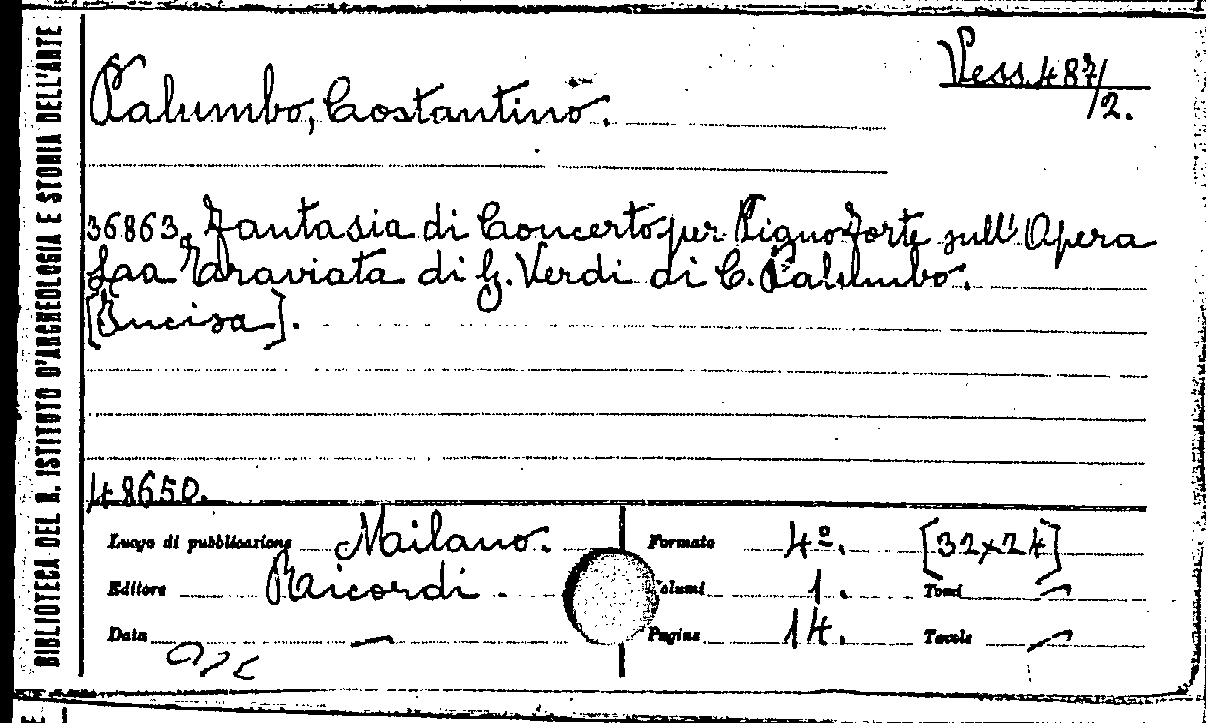 BIBLIOTECA DEL R. ISTITUTO D'ARCHEOLOGIA E STORIA DELL'ARTE
Vess. 487/2.
Palumbo, Costantino.
36863. Fantasia di Concerto per Pianoforte sull'Opera
Laa Traviata di G. Verdi di C. Palumbo.
[Incisa].
48650.
Luogo di pubblicazione Milano. Formato 4º. [32x24]
Editore Ricordi. Volumi 1. Tomi —
Data — Pagine 14. Tavole —